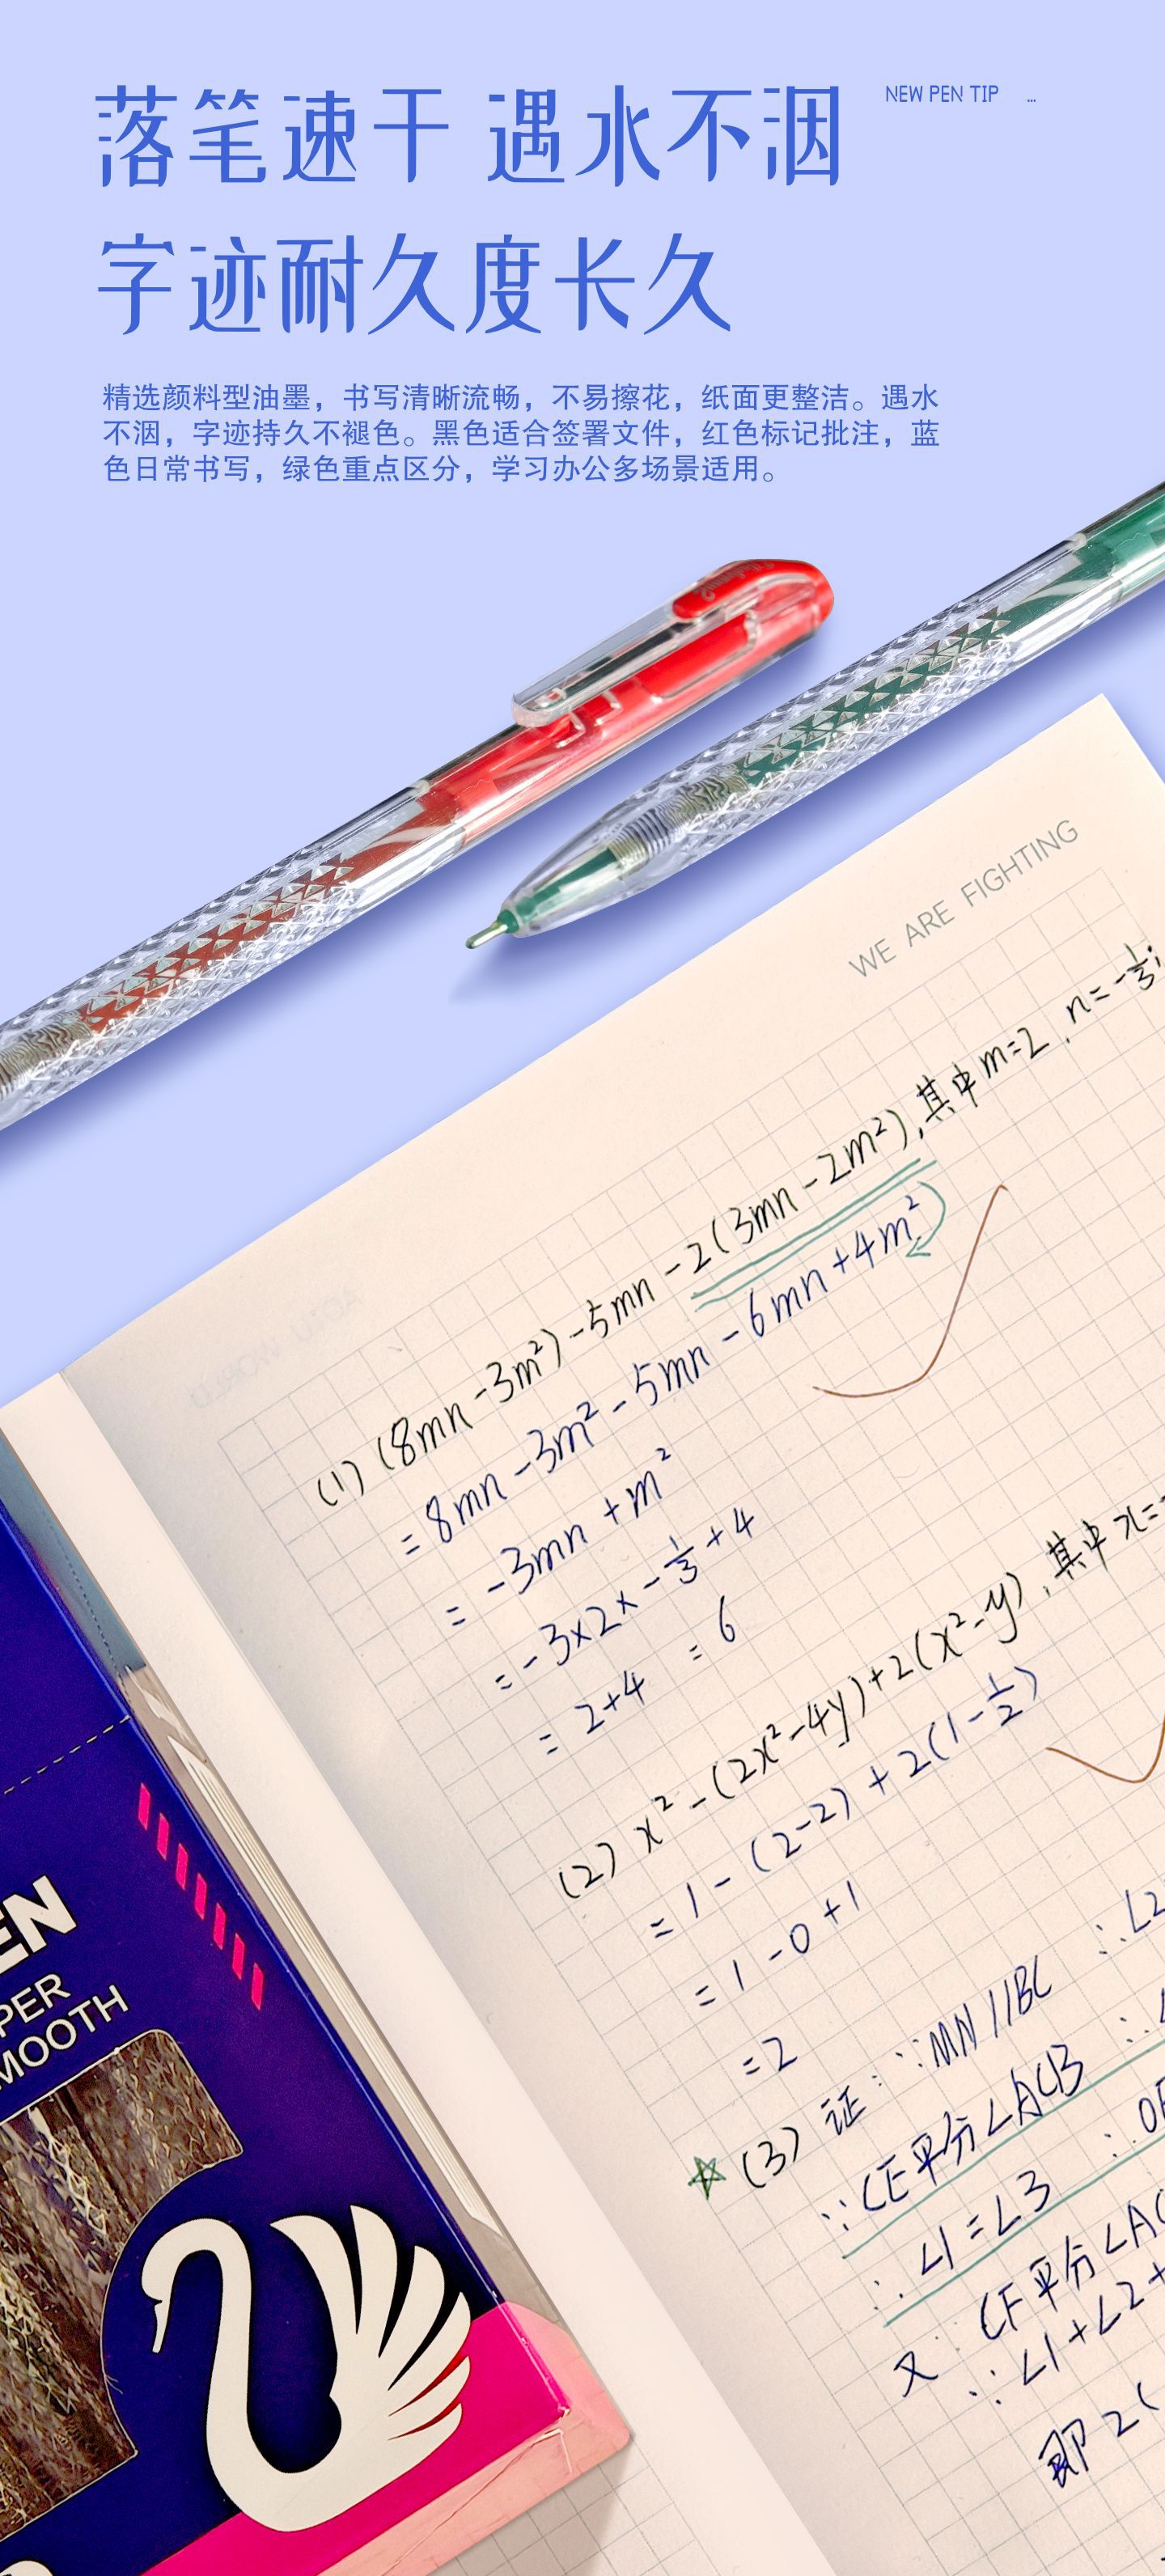 落笔速干 遇水不洇
NEW PEN TIP ...
字迹耐久度长久
精选颜料型油墨，书写清晰流畅，不易擦花，纸面更整洁。遇水
不洇，字迹持久不褪色。黑色适合签署文件，红色标记批注，蓝
色日常书写，绿色重点区分，学习办公多场景适用。
WE ARE FIGHTING
(1) (8mn-3m²)-5mn-2(3mn-2m²),其中m=2,n=-1/3
=8mn-3m²-5mn-6mn+4m²
=-3mn+m²
=-3×2×-1/3+4
=2+4 =6
(2) x²-(2x²-4y)+2(x²-y),其中x=
=1-(2-2)+2(1-1/2)
=1-0+1
=2
(3) 证:∵MN//BC ∴∠2
∵CE平分∠ACB ∴∠
∴∠1=∠3 ∴OE
又∵CF平分∠AC
∵∠1+∠2+
即2(
EN
PER
MOOTH